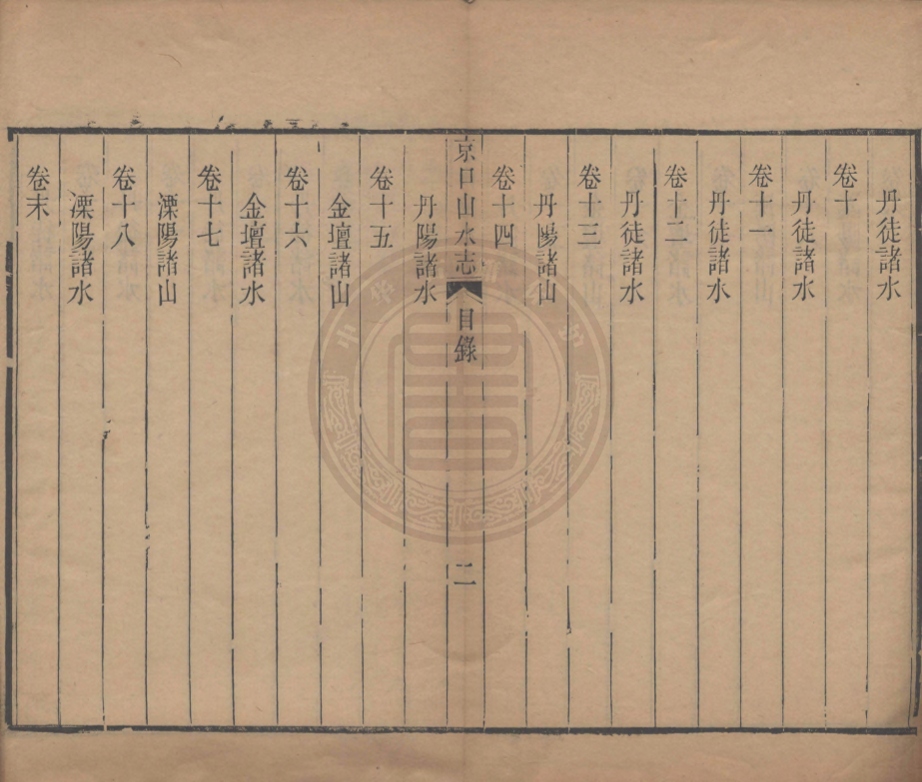 丹徒諸水
卷十
丹徒諸水
卷十一
丹徒諸水
卷十二
丹徒諸水
卷十三
丹陽諸山
卷十四
京口山水志 目錄 二
丹陽諸水
卷十五
金壇諸山
卷十六
金壇諸水
卷十七
溧陽諸山
卷十八
溧陽諸水
卷末